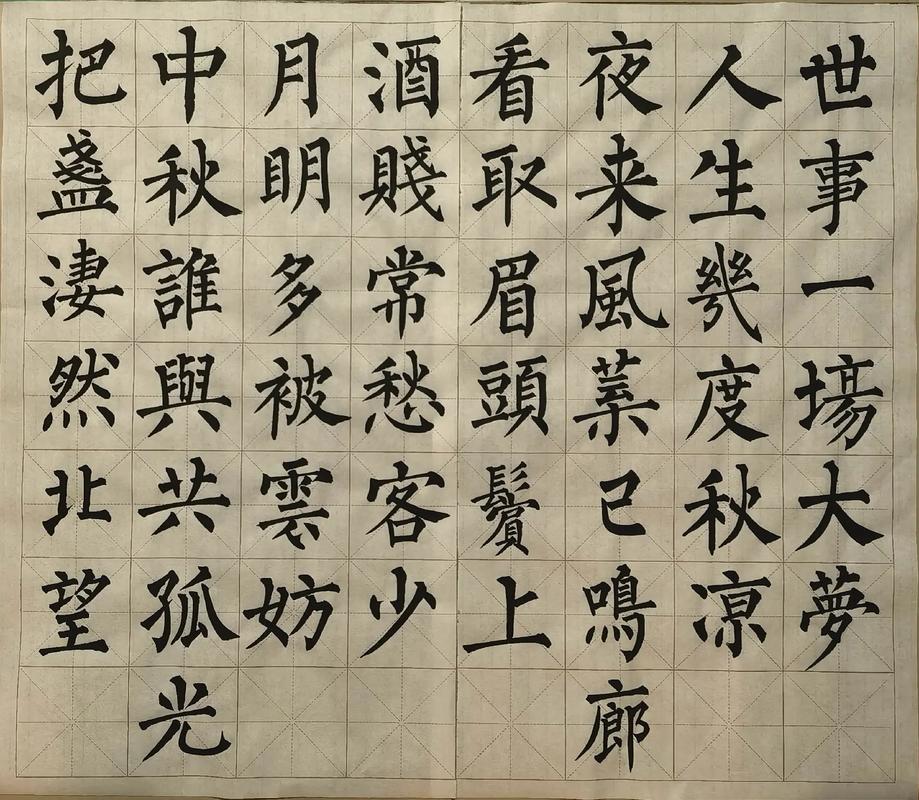 世事一場大夢
人生幾度秋凉
夜来風葉已鳴廊
看取眉頭鬢上
酒賤常愁客少
月明多被雲妨
中秋誰與共孤光
把盞淒然北望